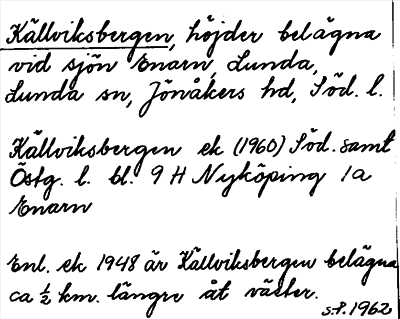 Källviksbergen, höjder belägna
vid sjön Enarn, Lunda,
Lunda sn, Jönåkers hd, Söd. l.
Källviksbergen ek (1960) Söd. samt
Östg. l. bl. 9 H Nyköping 1a
Enarn
Enl. ek 1948 är Källviksbergen belägna
ca ½ km. längre åt väster.
s.P. 1962